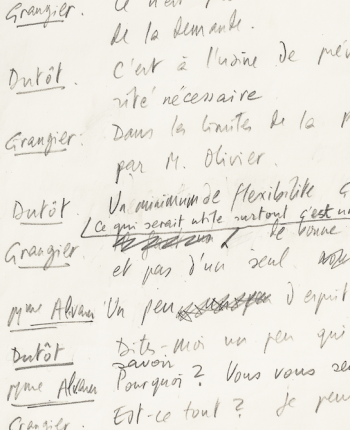 Grangier.
de la demande.
Dutôt. C'est à l'usine de
rité nécessaire
Grangier. Dans les limites de la p
par M. Olivier.
Dutôt. Un minimum de flexibilité
Ce qui serait utile surtout c'est
Grangier de bonne
et pas d'un seul
Mme Alvan Un peu d'esprit
Dutôt Dites-moi un peu qui
savoir
Mme Alvan Pourquoi ? Vous vous
Grangier. Est-ce tout ? Je peu